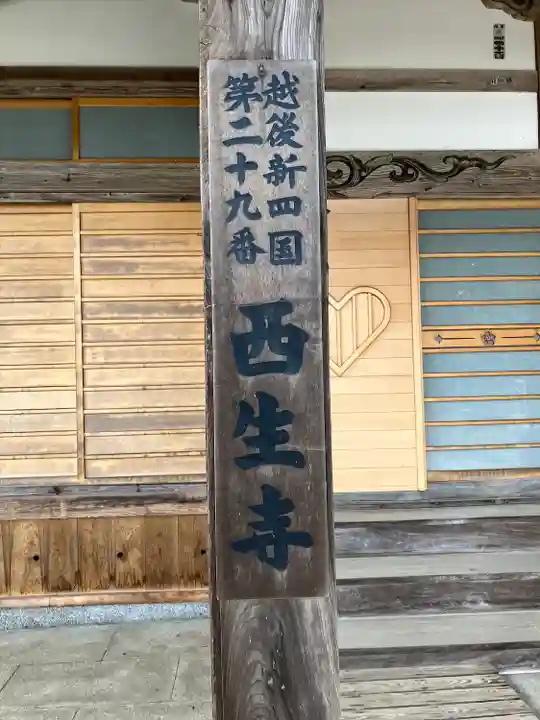 越後新四国
第二十九番
西生寺